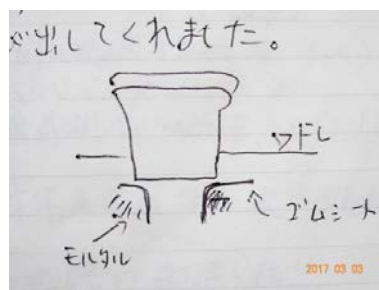 出してくれました。
▽FL
ゴムシート
モルタル
2017 03 03